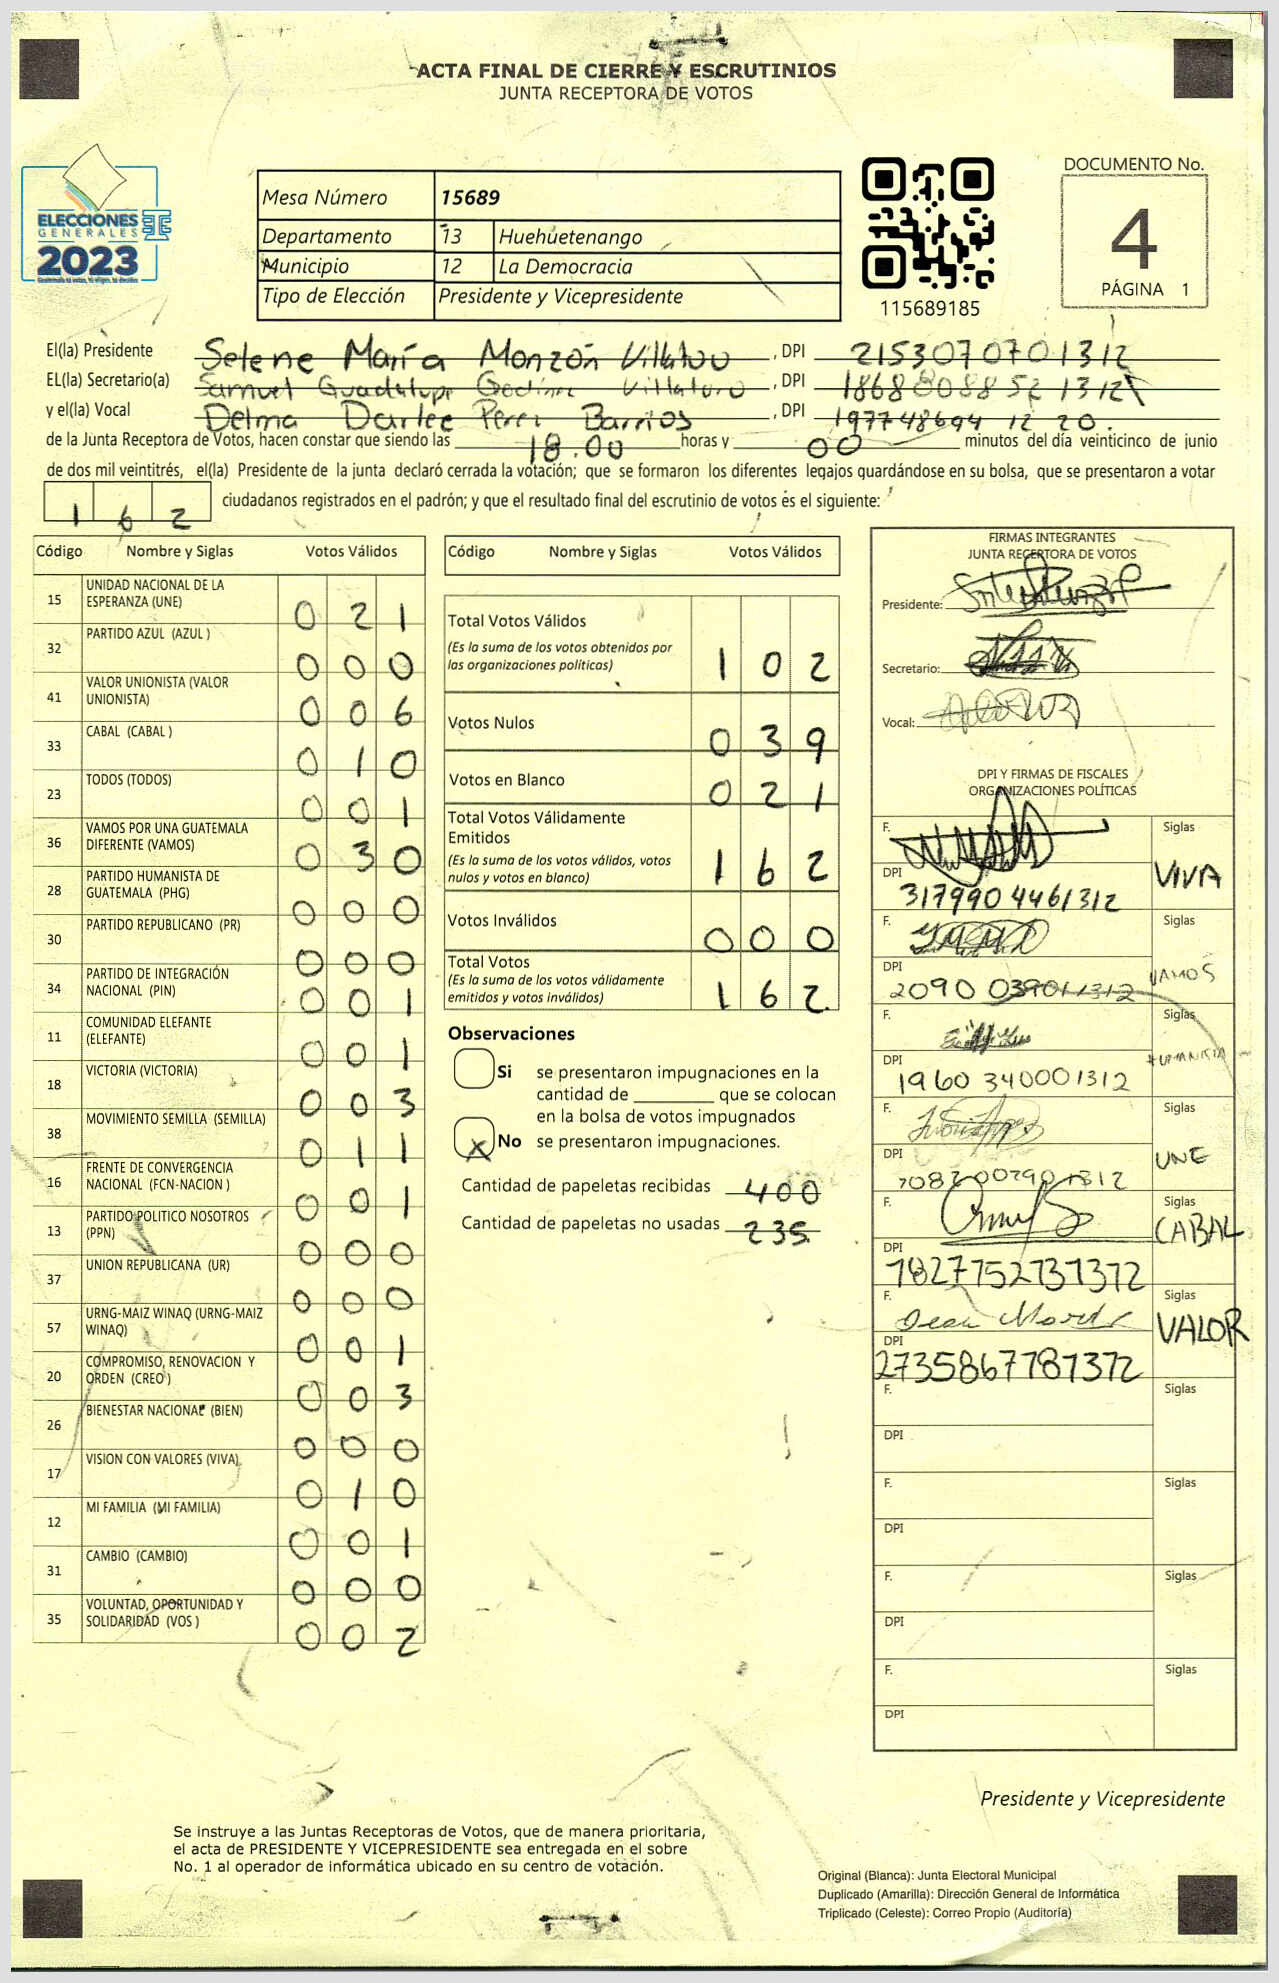 ACTA FINAL DE CIERRE Y ESCRUTINIOS
JUNTA RECEPTORA DE VOTOS
ELECCIONES
GENERALES
2023
Mesa Número 15689
Departamento 13 Huehuetenango
Municipio 12 La Democracia
Tipo de Elección Presidente y Vicepresidente
115689185
DOCUMENTO No.
4
PÁGINA 1
El(la) Presidente Selene María Monzón Villatoro, DPI 2153070701312
EL(la) Secretario(a) Samuel Guadalupe Godínez Villatoro, DPI 1868808852 1312
y el(la) Vocal Delma Darlee Perez Barrios, DPI 197748694 12 20.
de la Junta Receptora de Votos, hacen constar que siendo las 18.00 horas y 00 minutos del día veinticinco de junio
de dos mil veintitrés, el(la) Presidente de la junta declaró cerrada la votación; que se formaron los diferentes legajos guardándose en su bolsa, que se presentaron a votar
162 ciudadanos registrados en el padrón; y que el resultado final del escrutinio de votos es el siguiente:
Código Nombre y Siglas Votos Válidos
15 UNIDAD NACIONAL DE LA ESPERANZA (UNE) 021
32 PARTIDO AZUL (AZUL ) 000
41 VALOR UNIONISTA (VALOR UNIONISTA) 006
33 CABAL (CABAL ) 010
23 TODOS (TODOS) 001
36 VAMOS POR UNA GUATEMALA DIFERENTE (VAMOS) 030
28 PARTIDO HUMANISTA DE GUATEMALA (PHG) 000
30 PARTIDO REPUBLICANO (PR) 000
34 PARTIDO DE INTEGRACIÓN NACIONAL (PIN) 001
11 COMUNIDAD ELEFANTE (ELEFANTE) 001
18 VICTORIA (VICTORIA) 003
38 MOVIMIENTO SEMILLA (SEMILLA) 011
16 FRENTE DE CONVERGENCIA NACIONAL (FCN-NACION ) 001
13 PARTIDO POLITICO NOSOTROS (PPN) 000
37 UNION REPUBLICANA (UR) 000
57 URNG-MAIZ WINAQ (URNG-MAIZ WINAQ) 001
20 COMPROMISO, RENOVACION Y ORDEN (CREO ) 003
26 BIENESTAR NACIONAL (BIEN) 000
17 VISION CON VALORES (VIVA) 010
12 MI FAMILIA (MI FAMILIA) 001
31 CAMBIO (CAMBIO) 000
35 VOLUNTAD, OPORTUNIDAD Y SOLIDARIDAD (VOS ) 002
Código Nombre y Siglas Votos Válidos
Total Votos Válidos 102
(Es la suma de los votos obtenidos por
las organizaciones políticas)
Votos Nulos 039
Votos en Blanco 021
Total Votos Válidamente
Emitidos 162
(Es la suma de los votos válidos, votos
nulos y votos en blanco)
Votos Inválidos 000
Total Votos 162
(Es la suma de los votos válidamente
emitidos y votos inválidos)
Observaciones
Si se presentaron impugnaciones en la
cantidad de ________ que se colocan
en la bolsa de votos impugnados
X No se presentaron impugnaciones.
Cantidad de papeletas recibidas 400
Cantidad de papeletas no usadas 235
FIRMAS INTEGRANTES
JUNTA RECEPTORA DE VOTOS
Presidente:
Secretario:
Vocal:
DPI Y FIRMAS DE FISCALES
ORGANIZACIONES POLÍTICAS
F. Siglas VIVA
DPI 317990 4461312
F. Siglas VAMOS
DPI 2090 039011312
F. Siglas HUMANISTA
DPI 1960 340001312
F. Siglas UNE
DPI
F. Siglas CABAL
DPI
F. Siglas VALOR
DPI
F. Siglas
DPI
F. Siglas
DPI
F. Siglas
DPI
F. Siglas
DPI
Presidente y Vicepresidente
Se instruye a las Juntas Receptoras de Votos, que de manera prioritaria,
el acta de PRESIDENTE Y VICEPRESIDENTE sea entregada en el sobre
No. 1 al operador de informática ubicado en su centro de votación.
Original (Blanca): Junta Electoral Municipal
Duplicado (Amarilla): Dirección General de Informática
Triplicado (Celeste): Correo Propio (Auditoría)